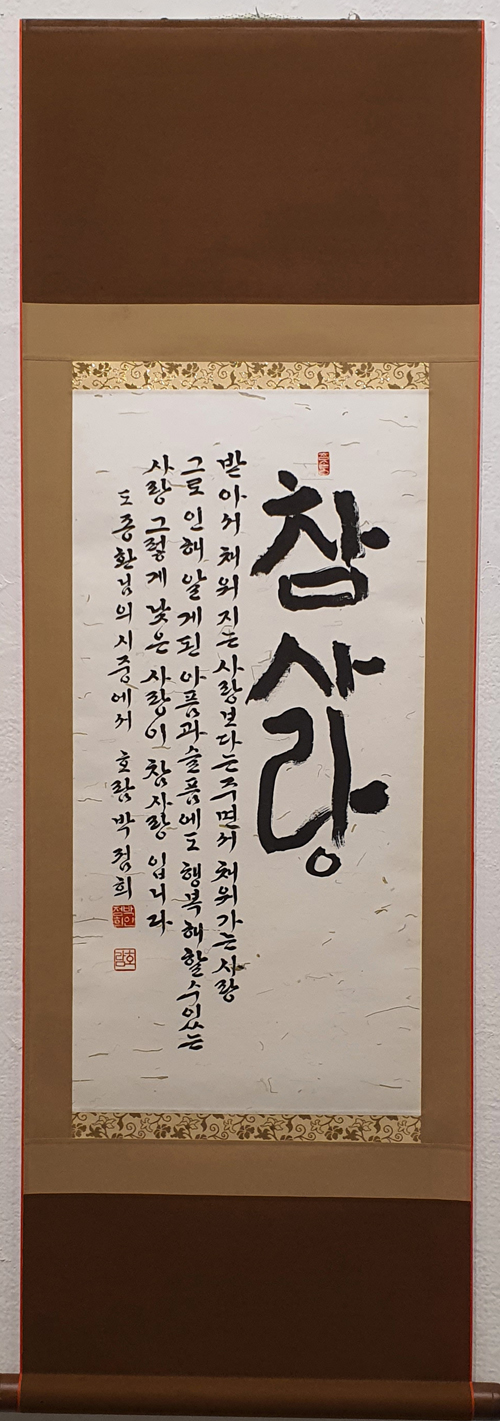 참사랑
받아서 채워지는 사랑보다는 주면서 채워가는 사랑
그로 인해 알게된 아픔과 슬픔에도 행복해 할 수 있는
사랑 그렇게 낮은 사랑이 참사랑 입니다
도종환님의 시중에서 호람 박점희
호람